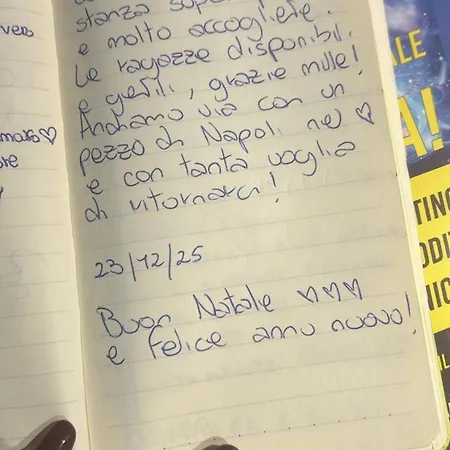 vero
amato♡
stanza super
e molto accogliente.
Le ragazze disponibili
e gentili, grazie mille!
Andiamo via con un
pezzo di Napoli nel ♡
e con tanta voglia
di ritornarci!
23/12/25
Buon Natale ♡♡♡
e felice anno nuovo!
ALE
A!
TINO
ODI
NIC
IL